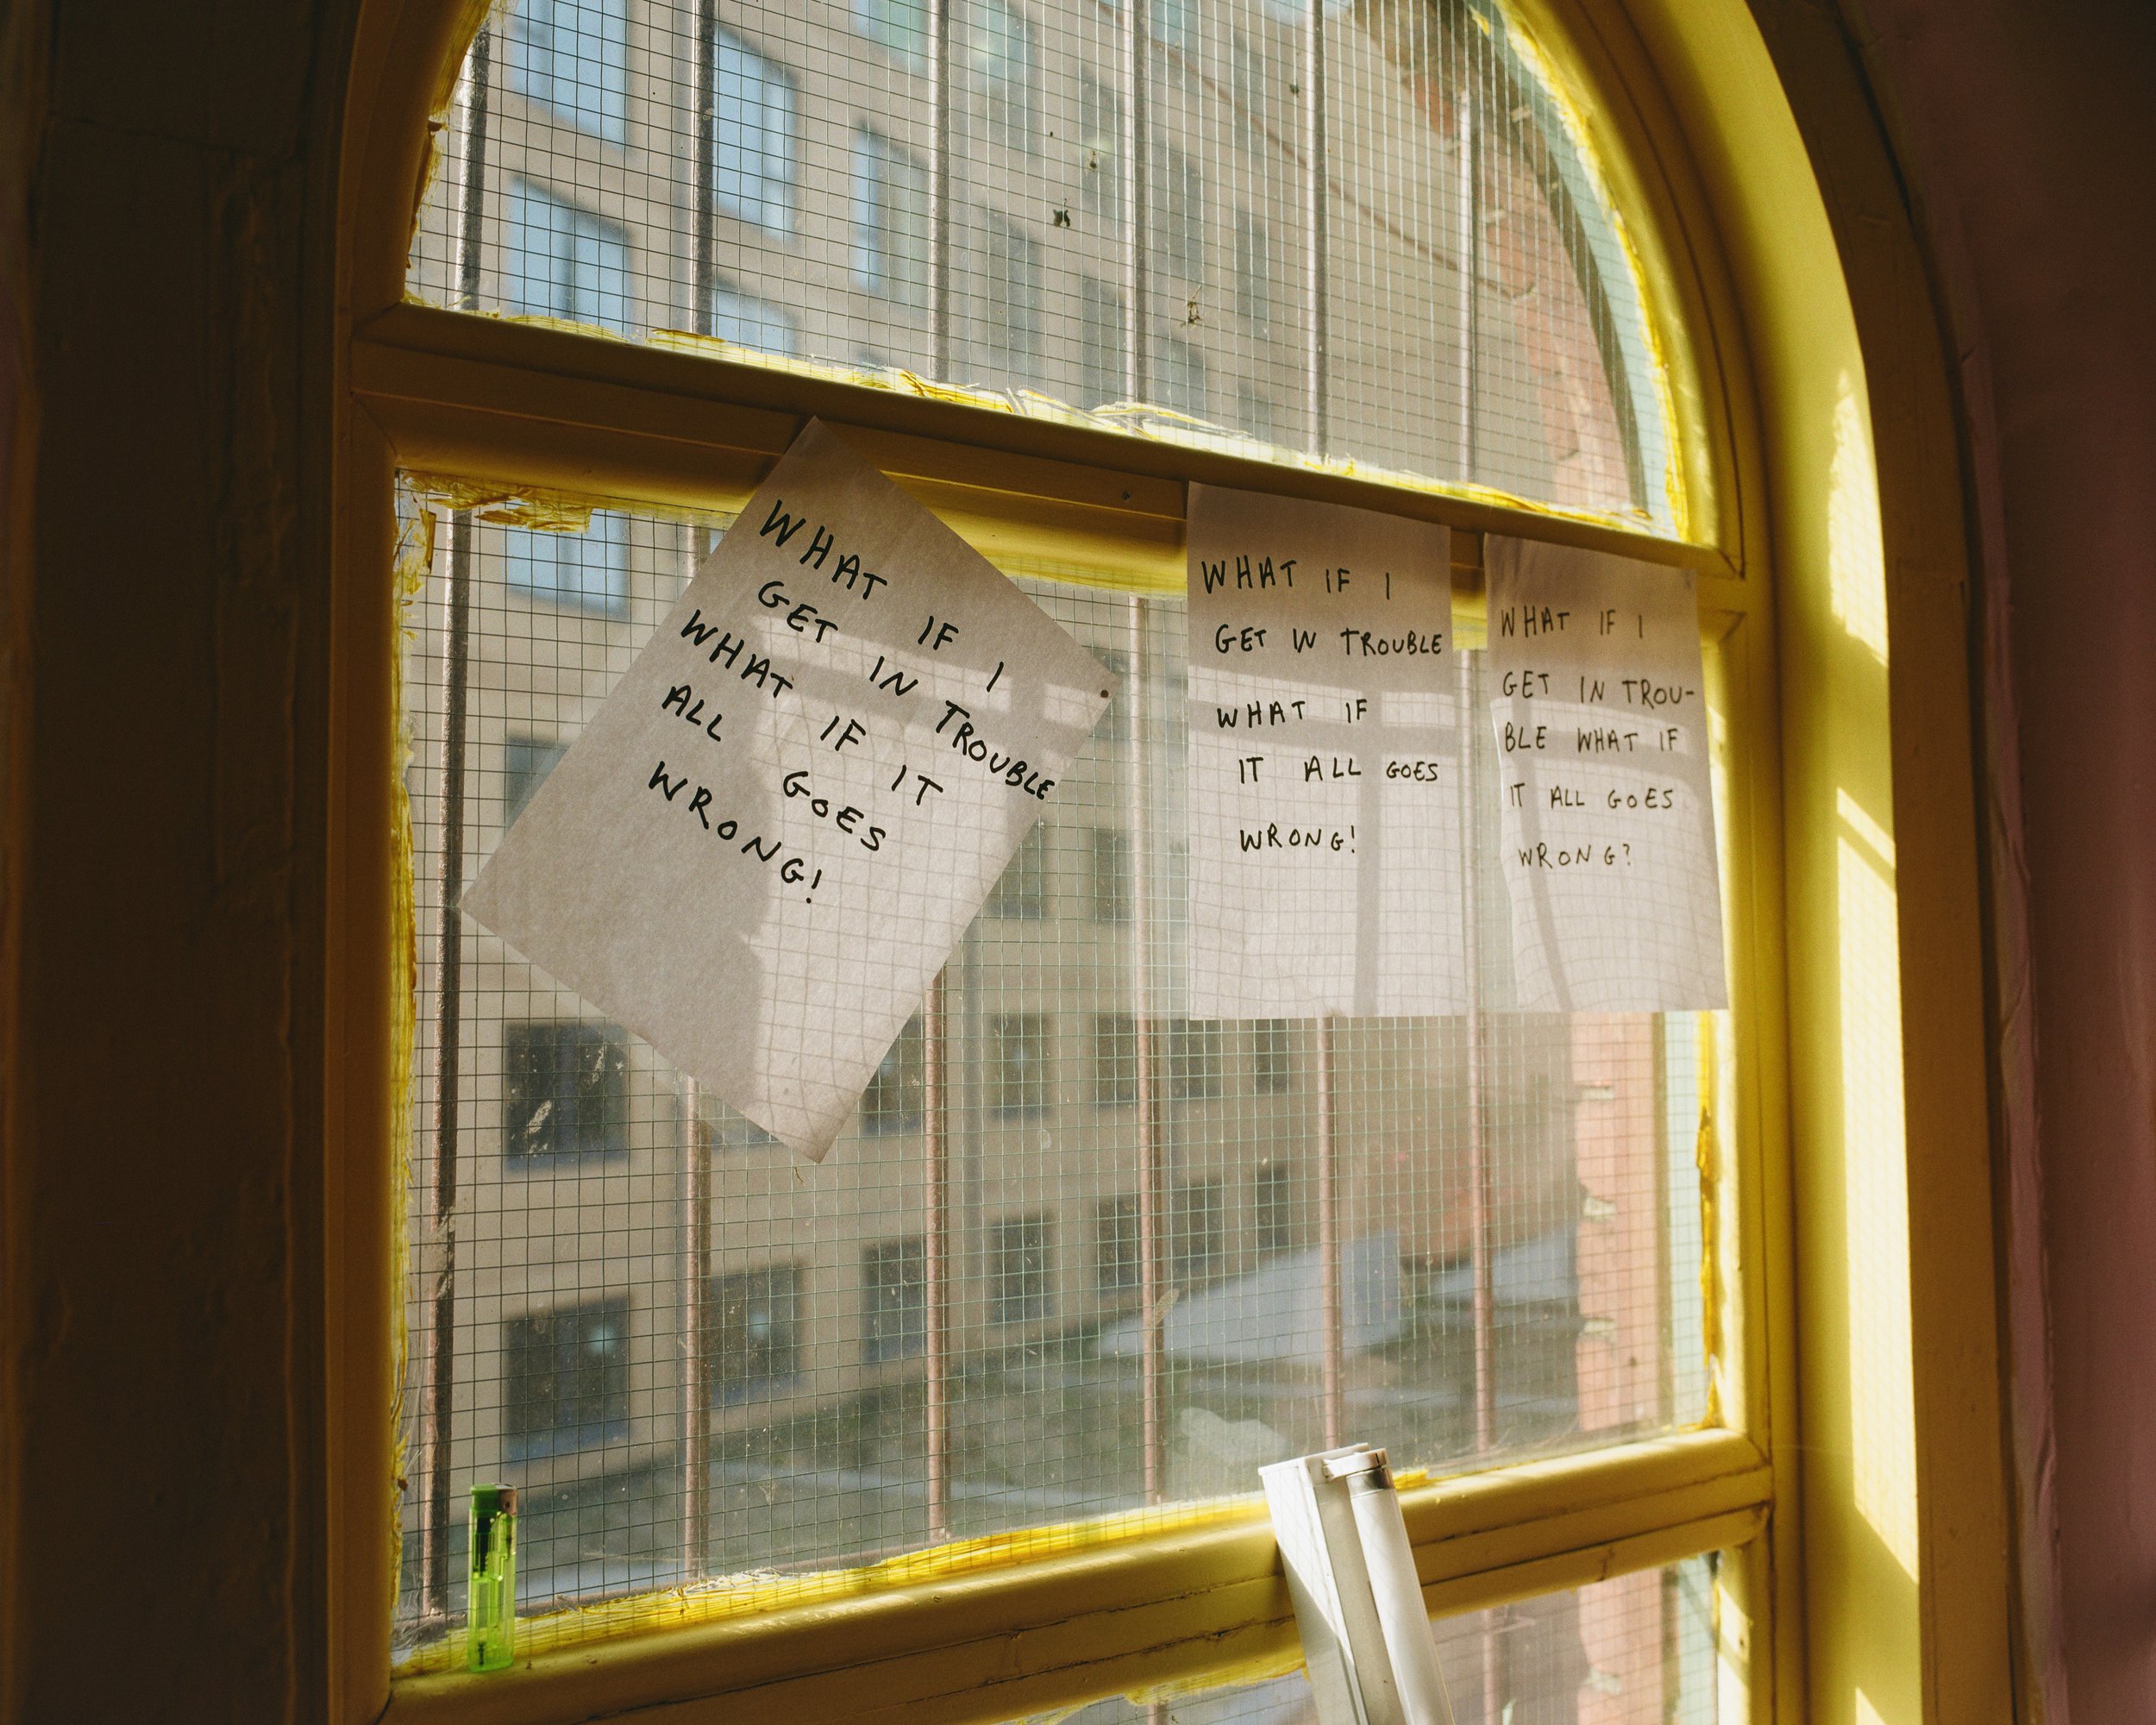 WHAT IF I
GET IN TROUBLE
WHAT IF IT
ALL GOES
WRONG!
WHAT IF I
GET IN TROUBLE
WHAT IF
IT ALL GOES
WRONG!
WHAT IF I
GET IN TROU-
BLE WHAT IF
IT ALL GOES
WRONG?